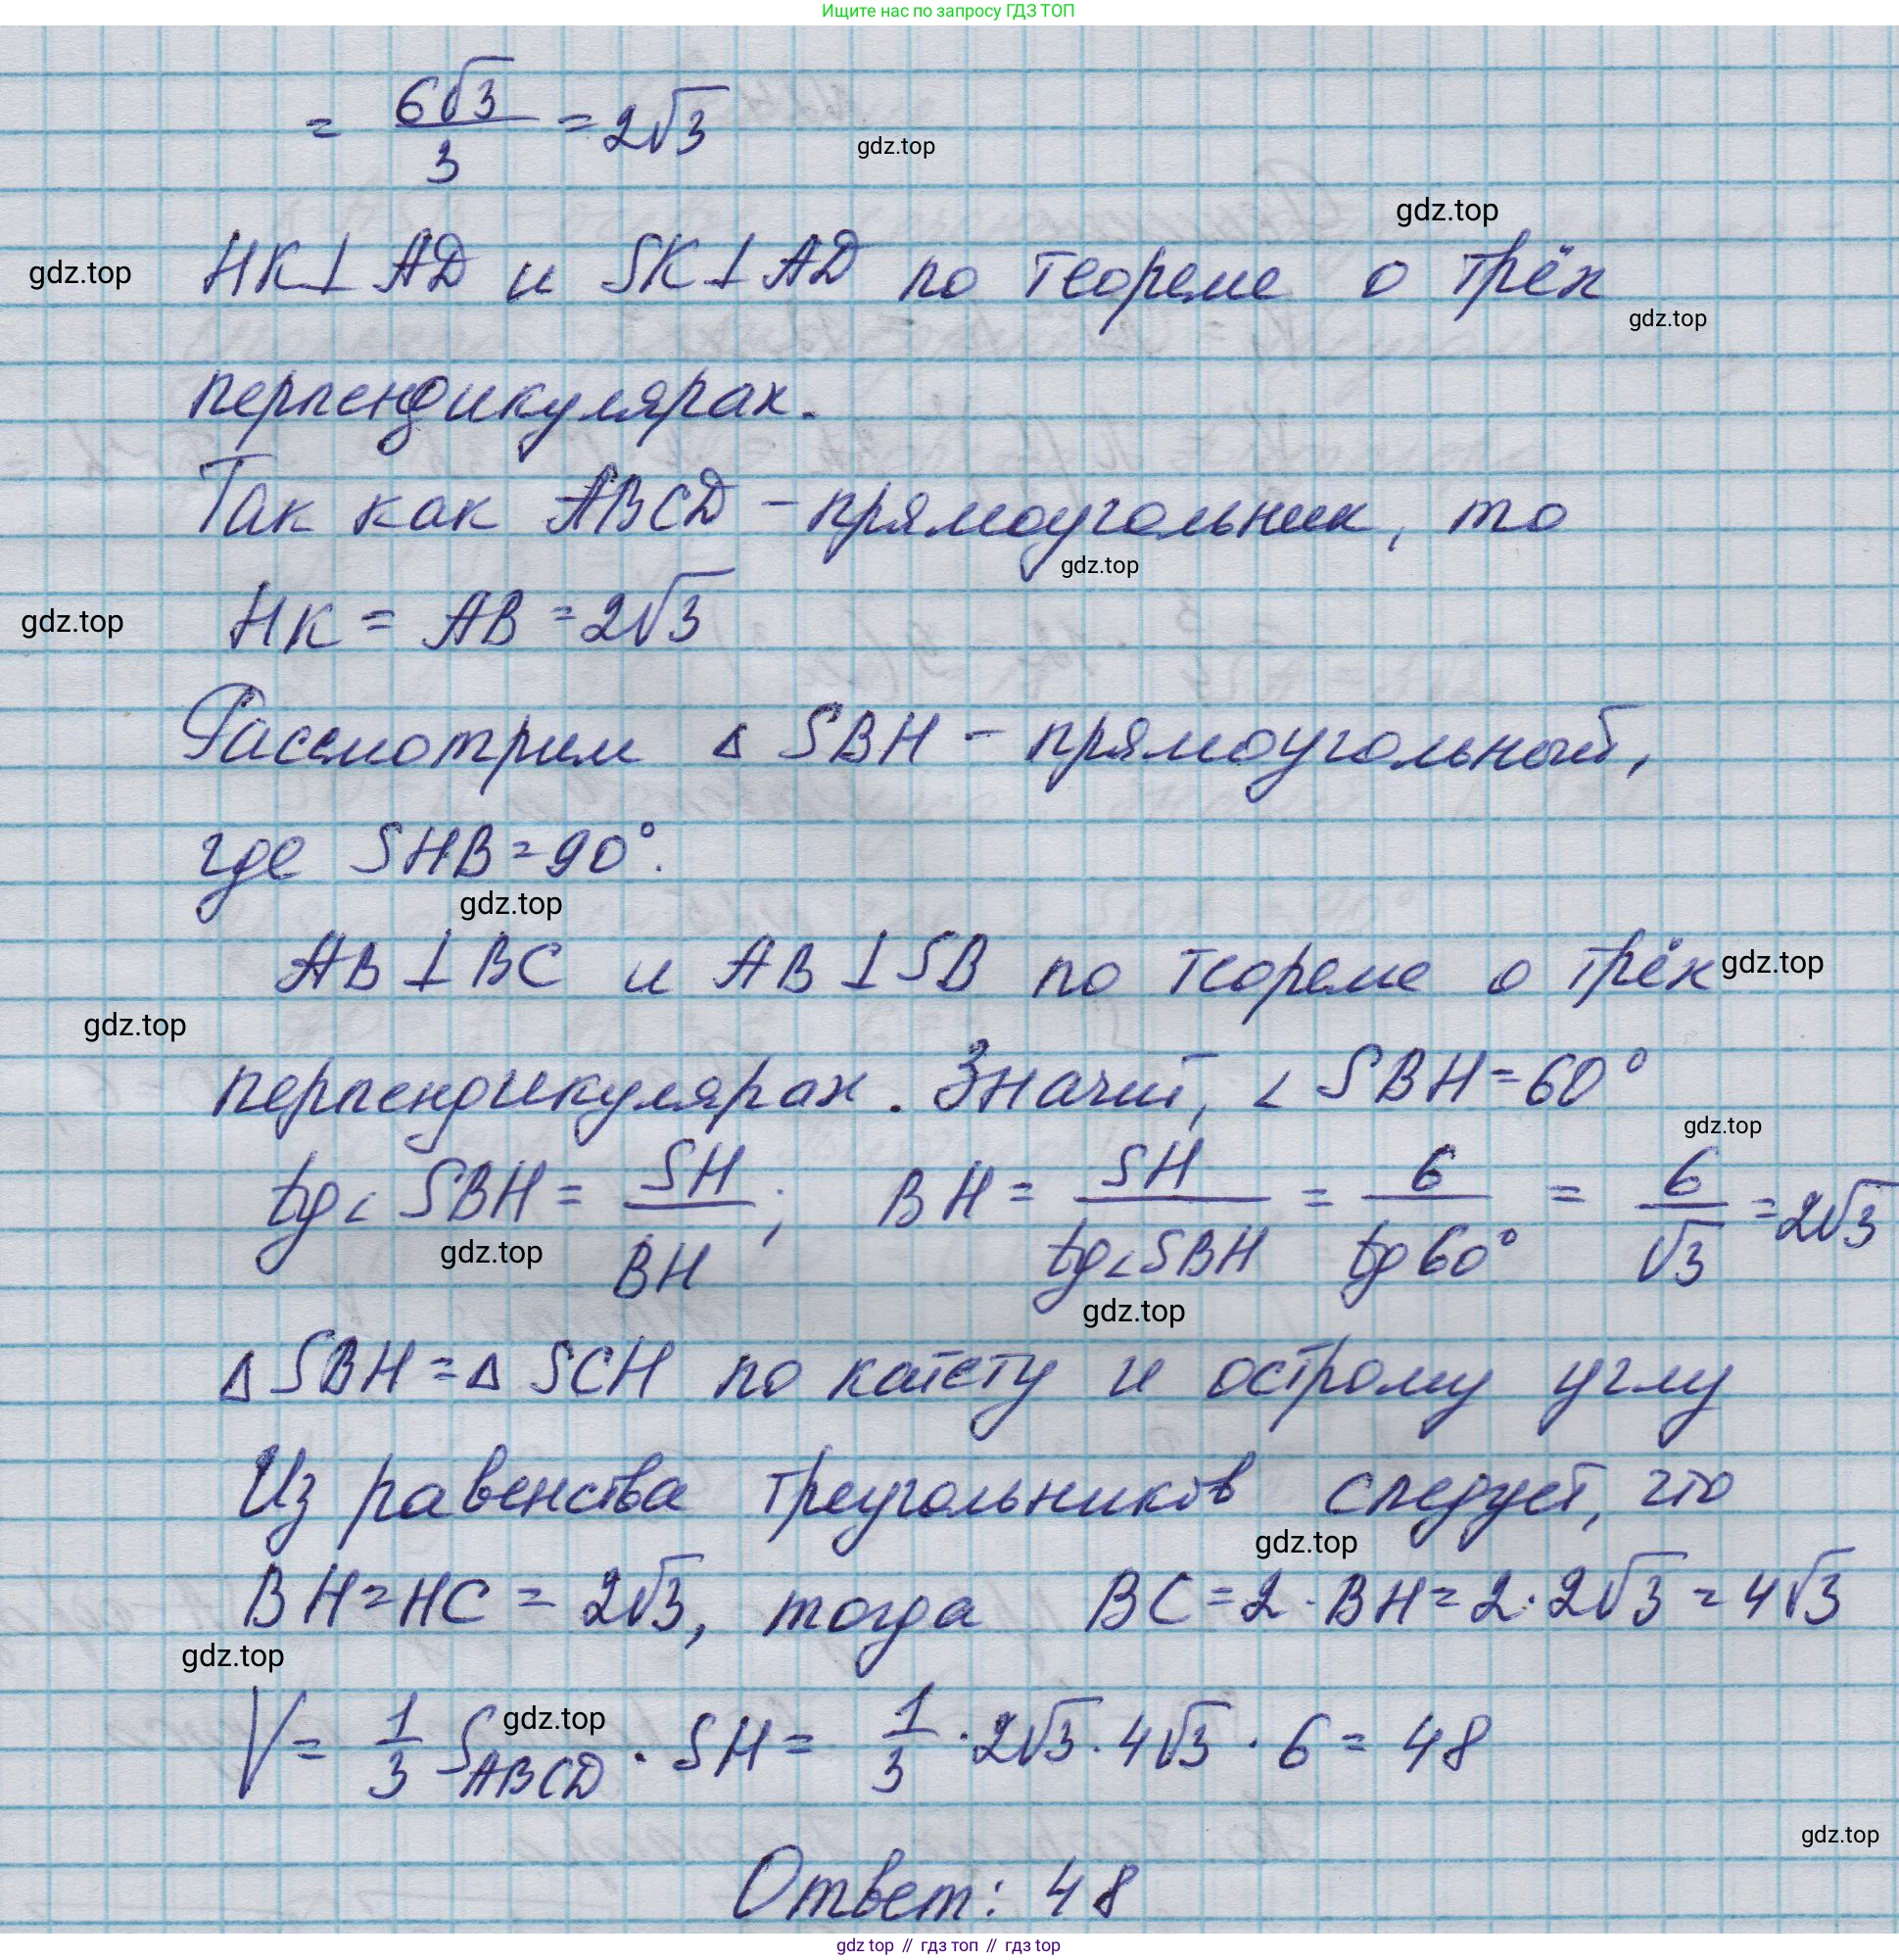 Ищите нас по запросу ГДЗ ТОП
= 6√3/3 = 2√3
gdz.top
gdz.top
HK⊥AD и SK⊥AD по теореме о трёх
gdz.top
gdz.top
перпендикулярах.
Так как ABCD – прямоугольник, то
gdz.top
HK = AB = 2√3
gdz.top
Рассмотрим Δ SBH – прямоугольный,
где SHB = 90°.
gdz.top
AB⊥BC и AB⊥SB по теореме о трёх
gdz.top
gdz.top
перпендикулярах. Значит, ∠ SBH = 60°
gdz.top
tg∠ SBH = SH/BH; BH = SH/tg∠SBH = 6/tg60° = 6/√3 = 2√3
gdz.top
gdz.top
Δ SBH = Δ SCH по катету и острому углу
Из равенства треугольников следует, что
gdz.top
BH = HC = 2√3, тогда BC = 2·BH = 2·2√3 = 4√3
gdz.top
gdz.top
V = 1/3 S_ABCD · SH = 1/3 · 2√3 · 4√3 · 6 = 48
gdz.top
Ответ: 48
gdz top // гдз топ // гдз top